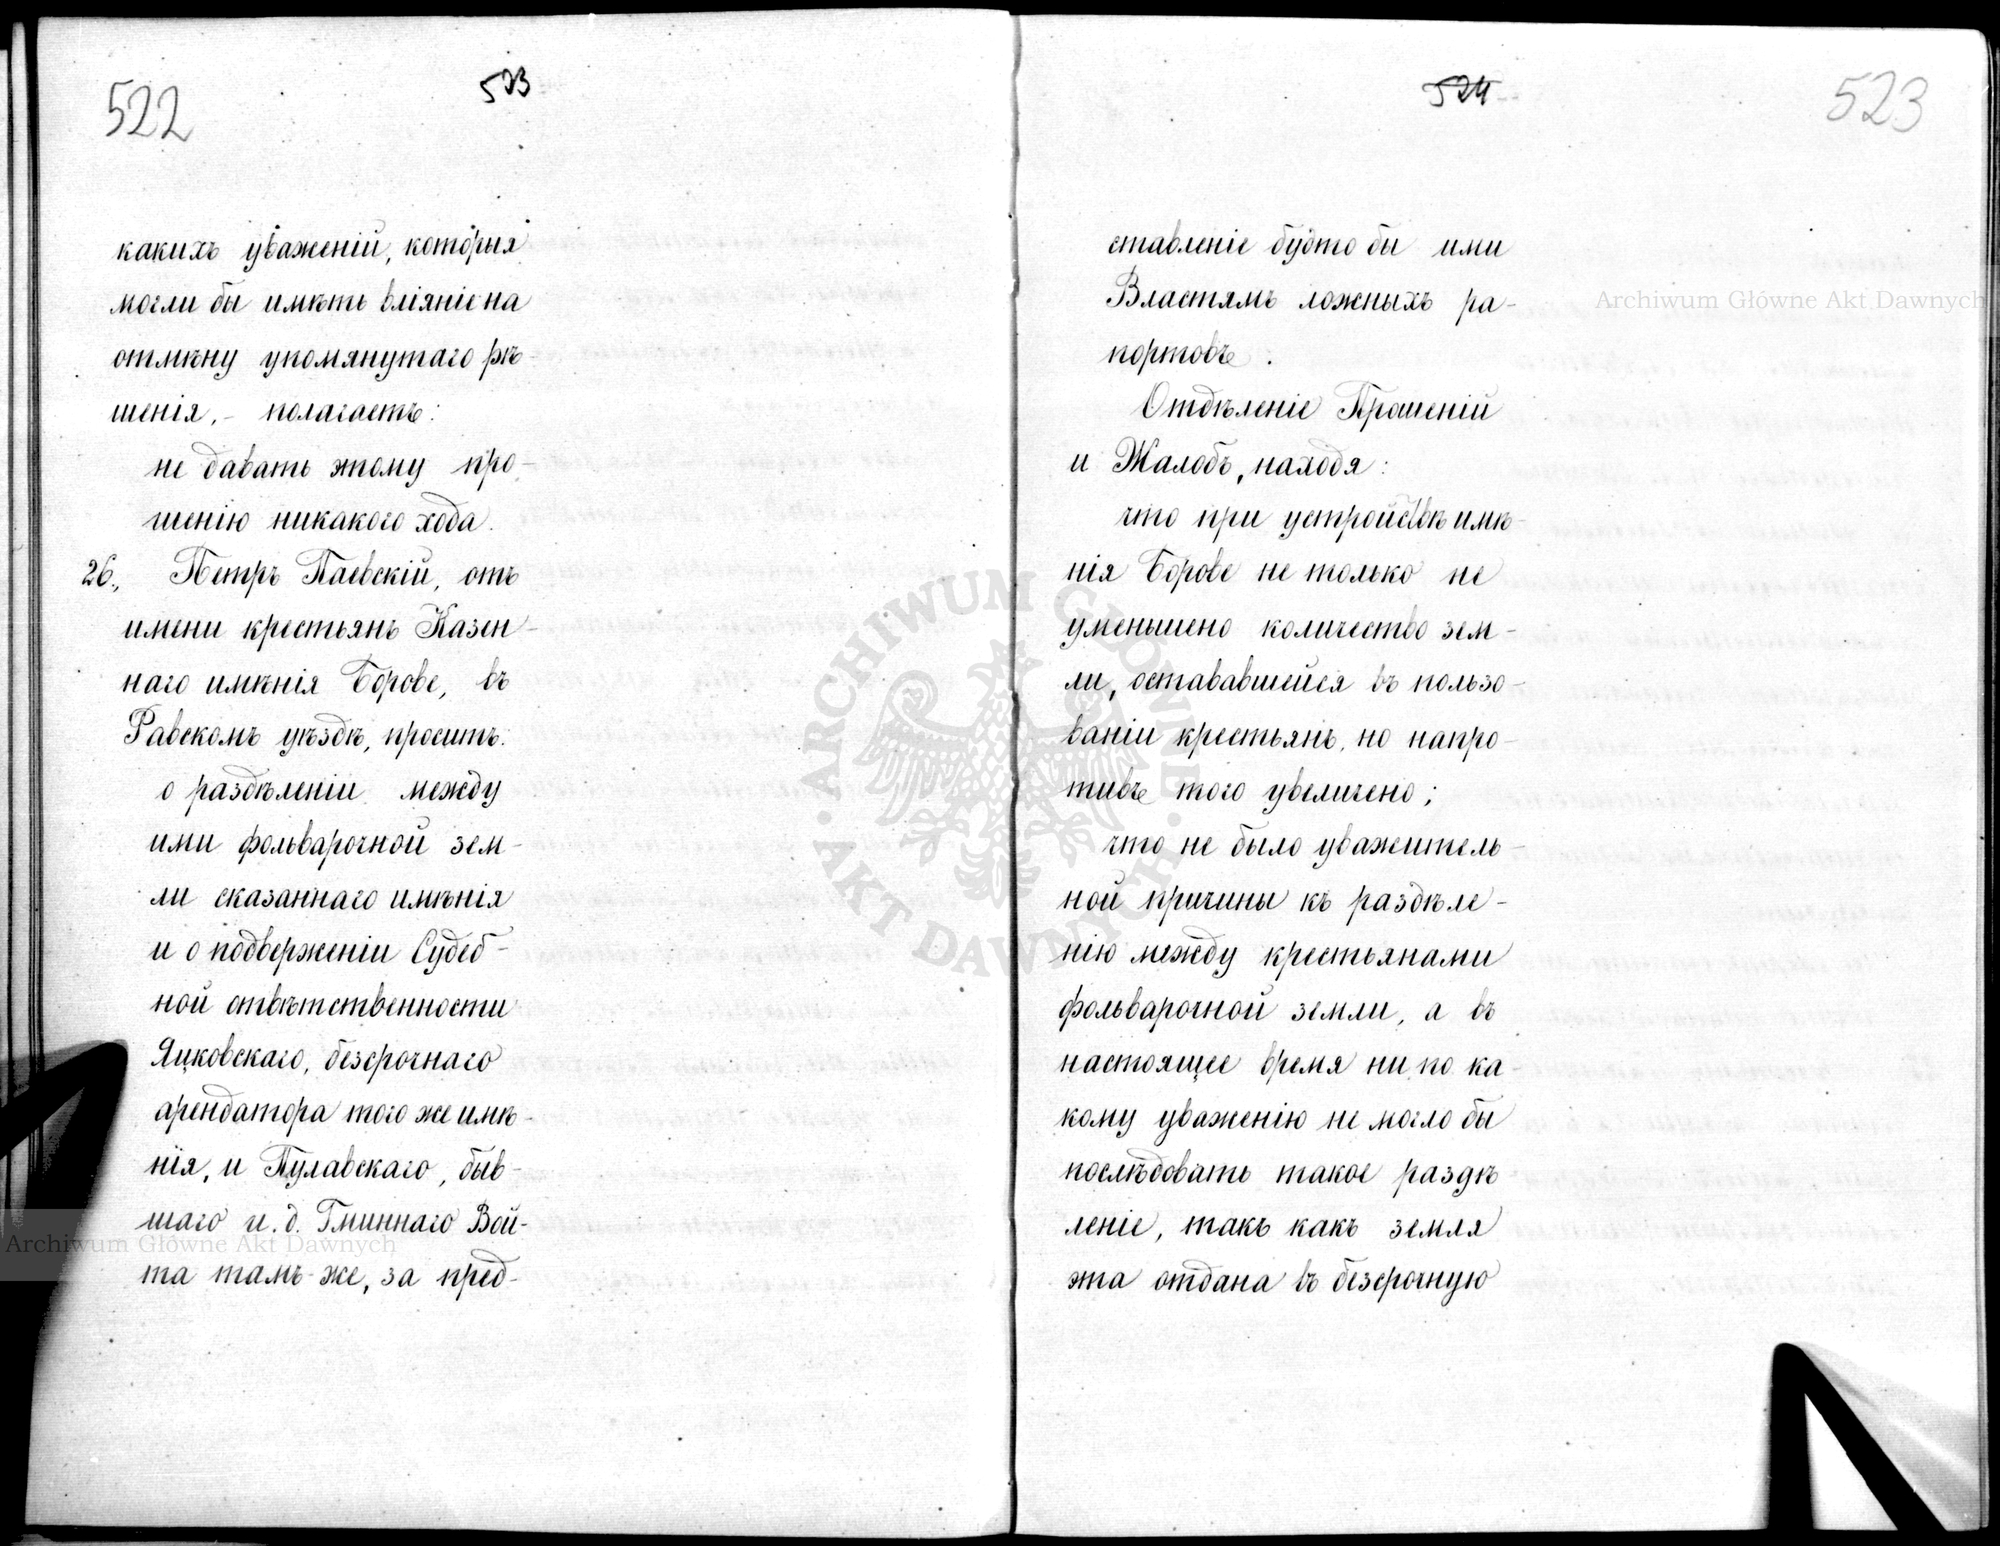 522
523
какихъ уваженій, которыя
могли бы имѣть вліяніе на
отмѣну упомянутаго рѣ-
шенія, - полагаетъ:
не давать этому про-
шенію никакого хода.
26., Петръ Паевскій, отъ
имени крестьянъ Казен-
наго имѣнія Борове, въ
Равскомъ уѣздѣ, проситъ:
о раздѣленіи между
ими фольварочной зем-
ли сказаннаго имѣнія
и о подверженіи Судеб-
ной отвѣтственности
Яцковскаго, безсрочнаго
арендатора того же имѣ-
нія, и Пулавскаго, быв-
шаго и. д. Гминнаго Вой-
та тамъ-же, за пред-
524
523
ставленіе будто бы ими
Властямъ ложныхъ ра-
портовъ.
Отдѣленіе Прошеній
и Жалобъ, находя:
что при устройствѣ имѣ-
нія Борове не только не
уменьшено количество зем-
ли, остававшейся въ пользо-
ваніи крестьянъ, но напро-
тивъ того увеличено;
что не было уважитель-
ной причины къ раздѣле-
нію между крестьянами
фольварочной земли, а въ
настоящее время ни по ка-
кому уваженію не могло бы
послѣдовать такое раздѣ-
леніе, такъ какъ земля
эта отдана въ безсрочную
ARCHIWUM GŁÓWNE
AKT DAWNYCH
Archiwum Główne Akt Dawnych
Archiwum Główne Akt Dawnych